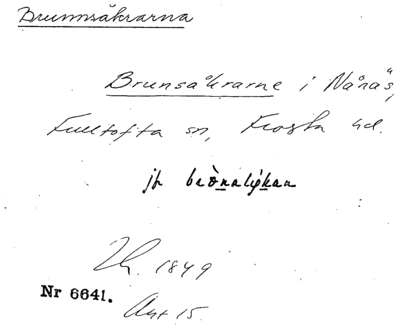 Brunnsåkrarna
Brunsåkrarne i Nånäs,
Fulltofta sn, Frosta hd.
jfr
1849
Nr 6641. Akt 15.